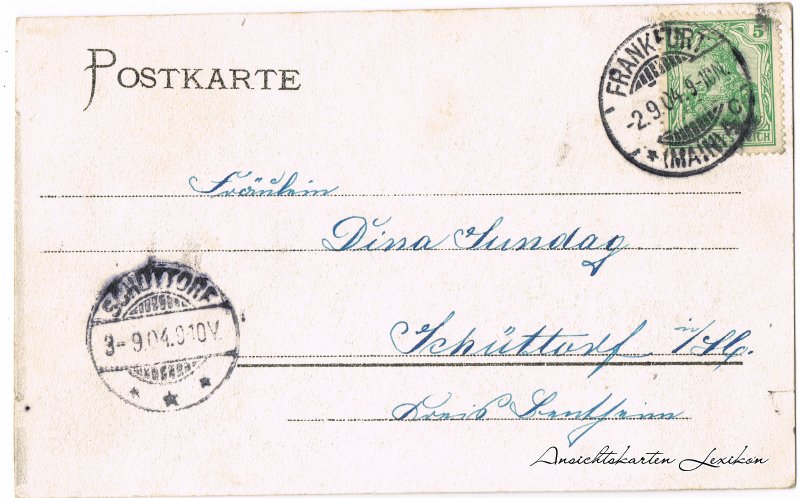 POSTKARTE
5
FRANKFURT
-2.9.04.9-10N.
*(MAIN)
Fräulein
Dina Sundag
SCHÜTTORF
3-9.04.9-10V.
Schüttorf i/
Kreis Bentheim
Ansichtskarten Lexikon